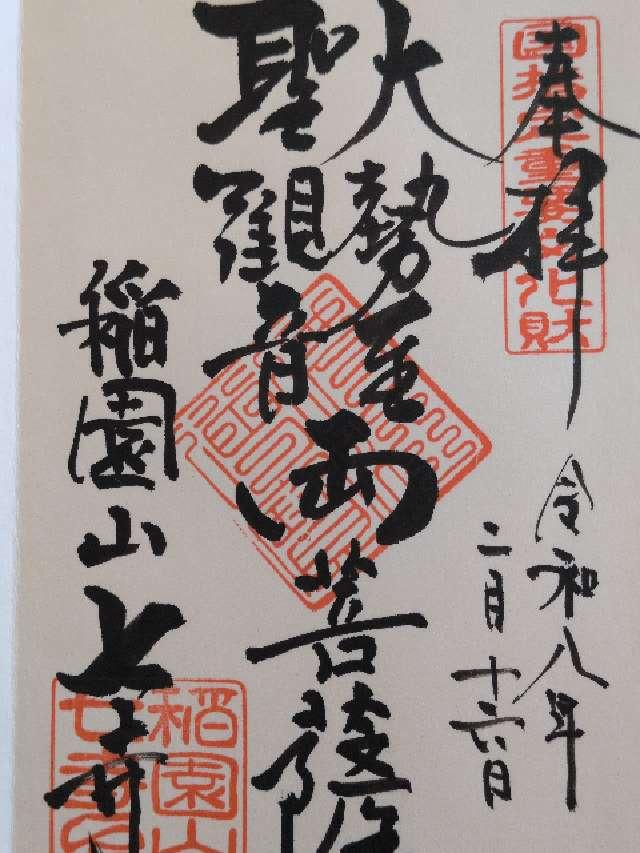 奉拝
國指定重要文化財
令和八年
二月十六日
大勢至
聖觀音
両菩薩
稲園山七寺
稲園山
七寺